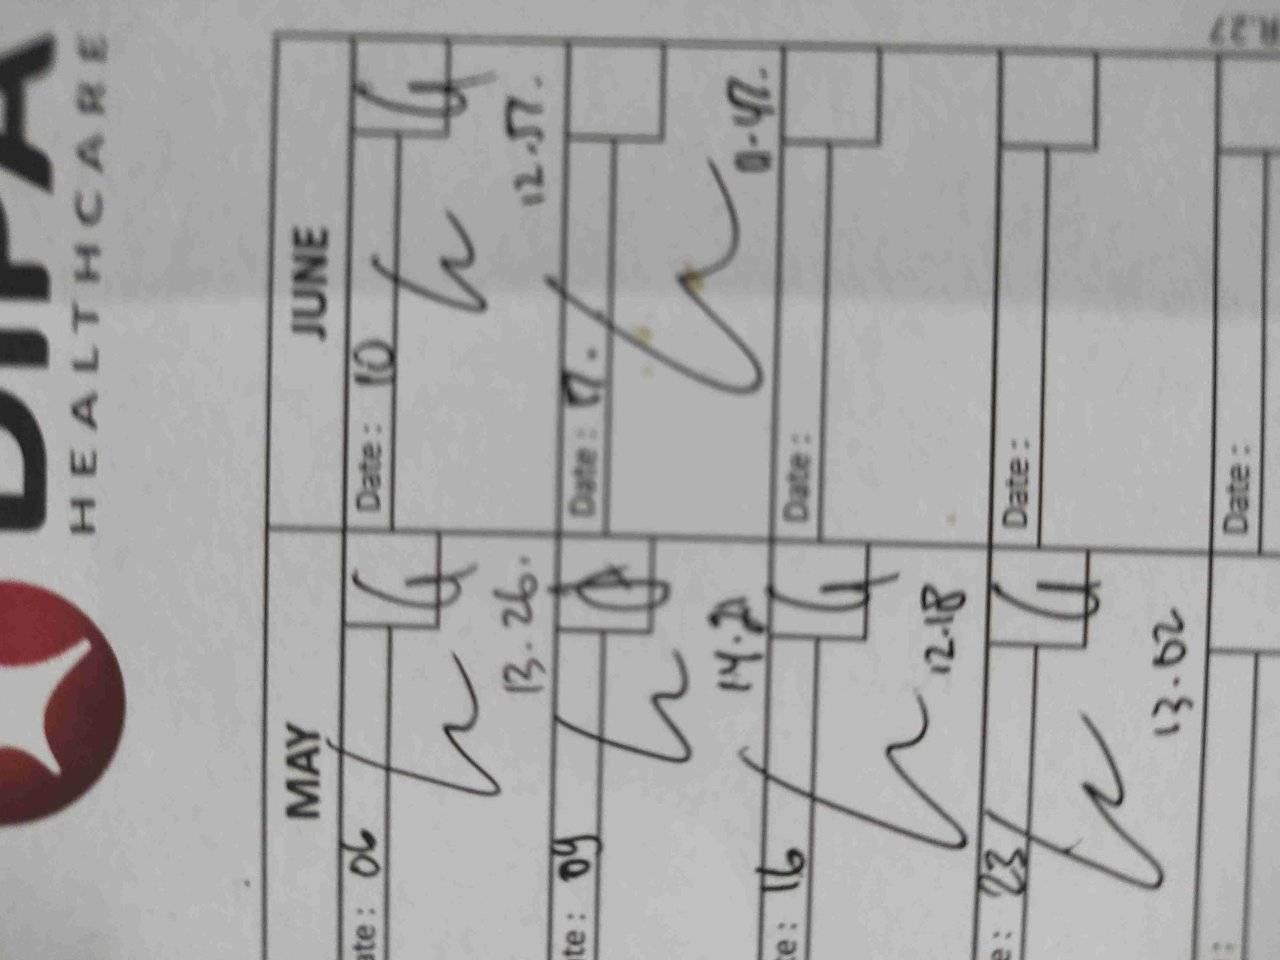 DIPA
HEALTHCARE
MAY
JUNE
ate: 06
Date: 10
13.26.
12.57.
te: 09
Date: 17.
14.21
te: 16
Date:
12.18
e: 23
Date:
13.02
:
Date: